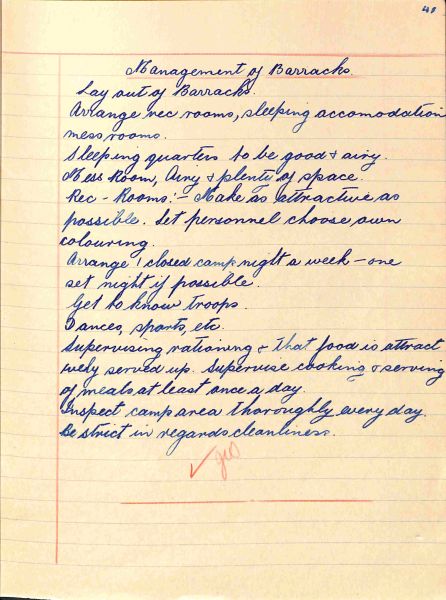 41
Management of Barracks.
Lay out of Barracks.
Arrange rec rooms, sleeping accomodation
mess, rooms.
Sleeping quarters to be good & airy.
Mess Room, Airy & plenty of space.
Rec - Rooms:- Make as attractive as
possible. Let personnel choose own
colouring.
Arrange 1 closed camp night a week - one
set night if possible.
Get to know troops.
Dances, sports, etc.
Supervising rationing & that food is attract
ively served up. Supervise cooking & serving
of meals at least once a day.
Inspect camp area thoroughly every day.
Be strict in regards cleanliness.